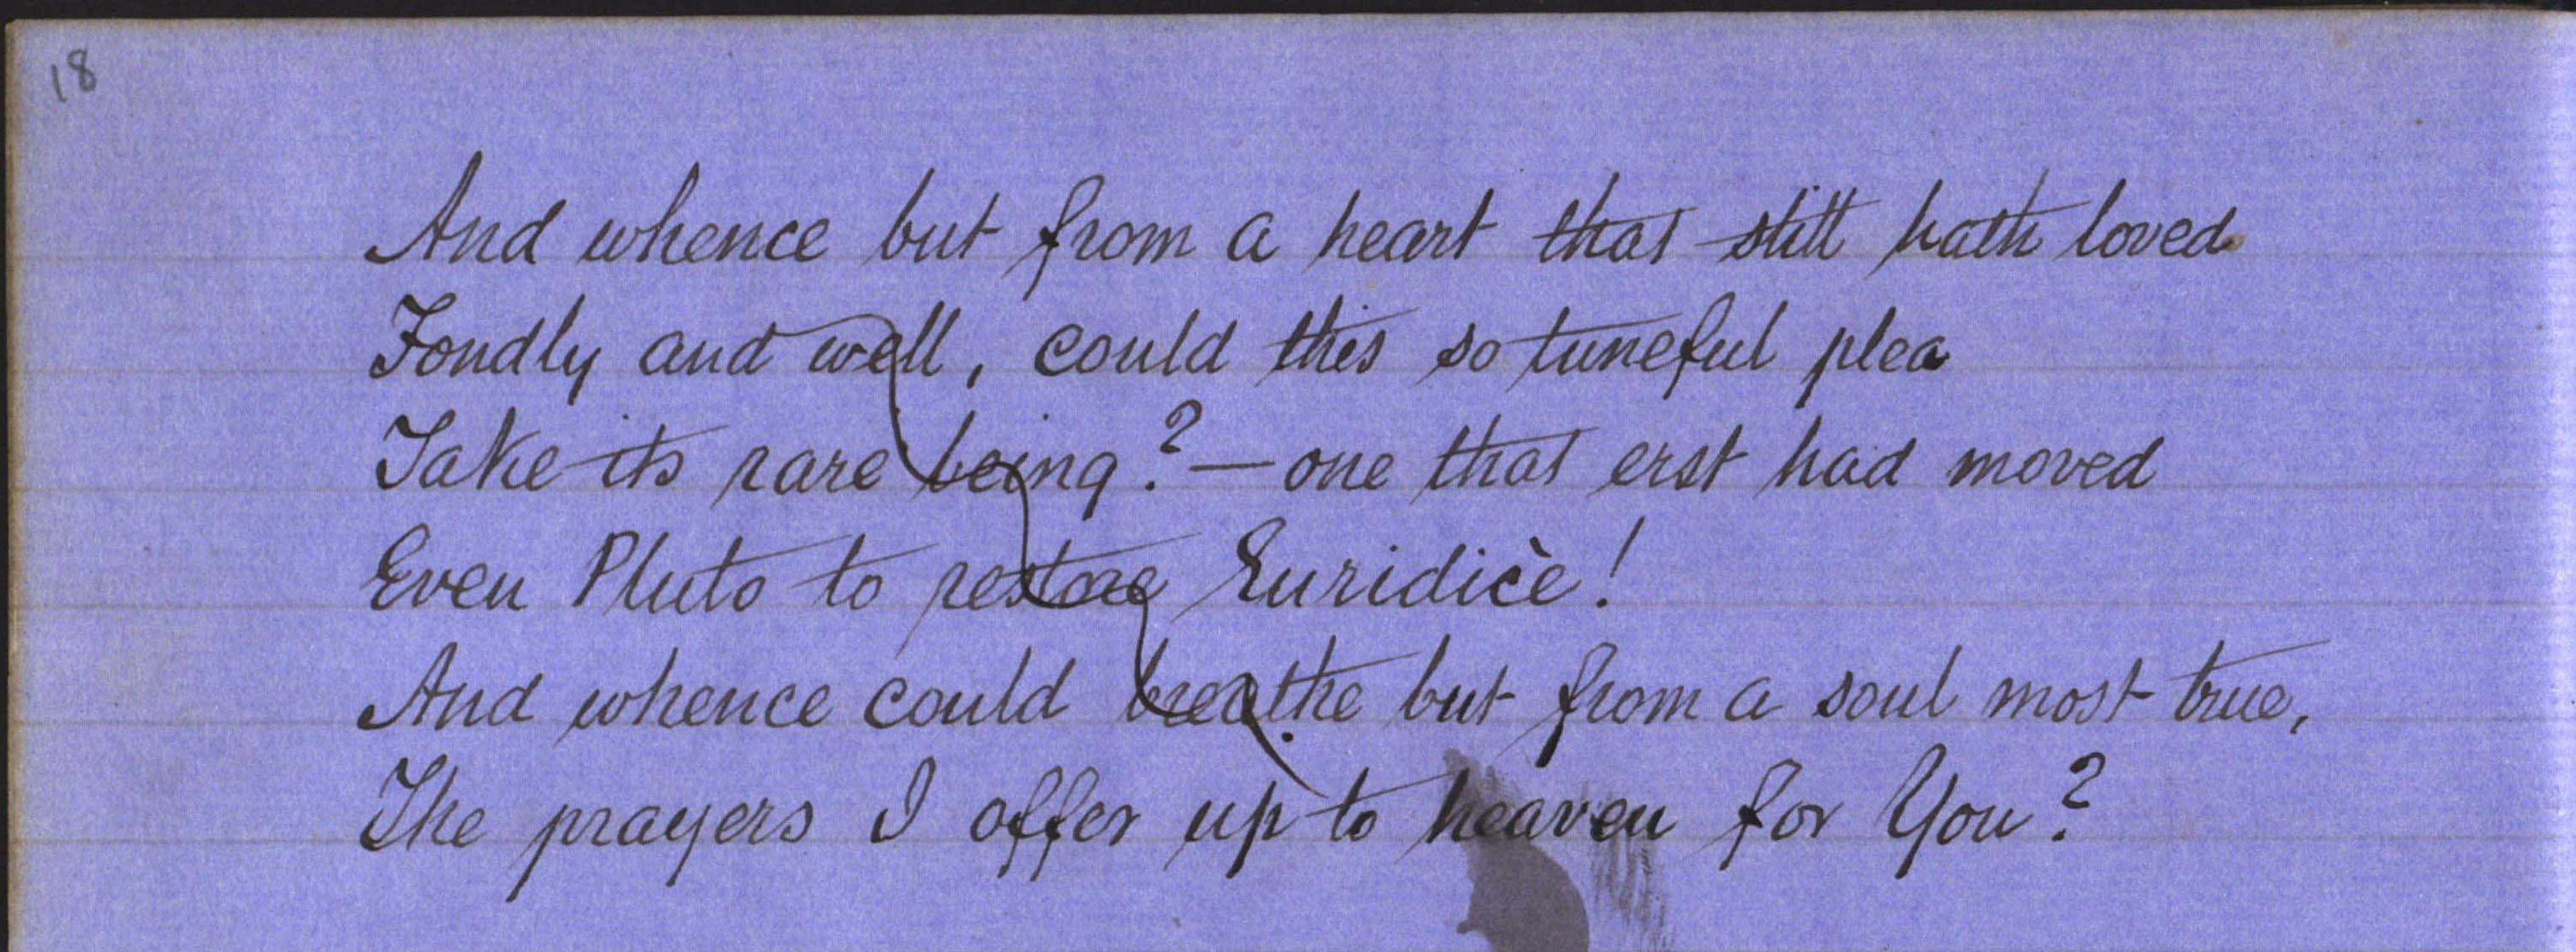 18
And whence but from a heart that still hath loved
Fondly and well, could this so tuneful plea
Take its rare being? — one that erst had moved
Even Pluto to restore Euridicè!
And whence could breathe but from a soul most true,
The prayers I offer up to heaven for You?